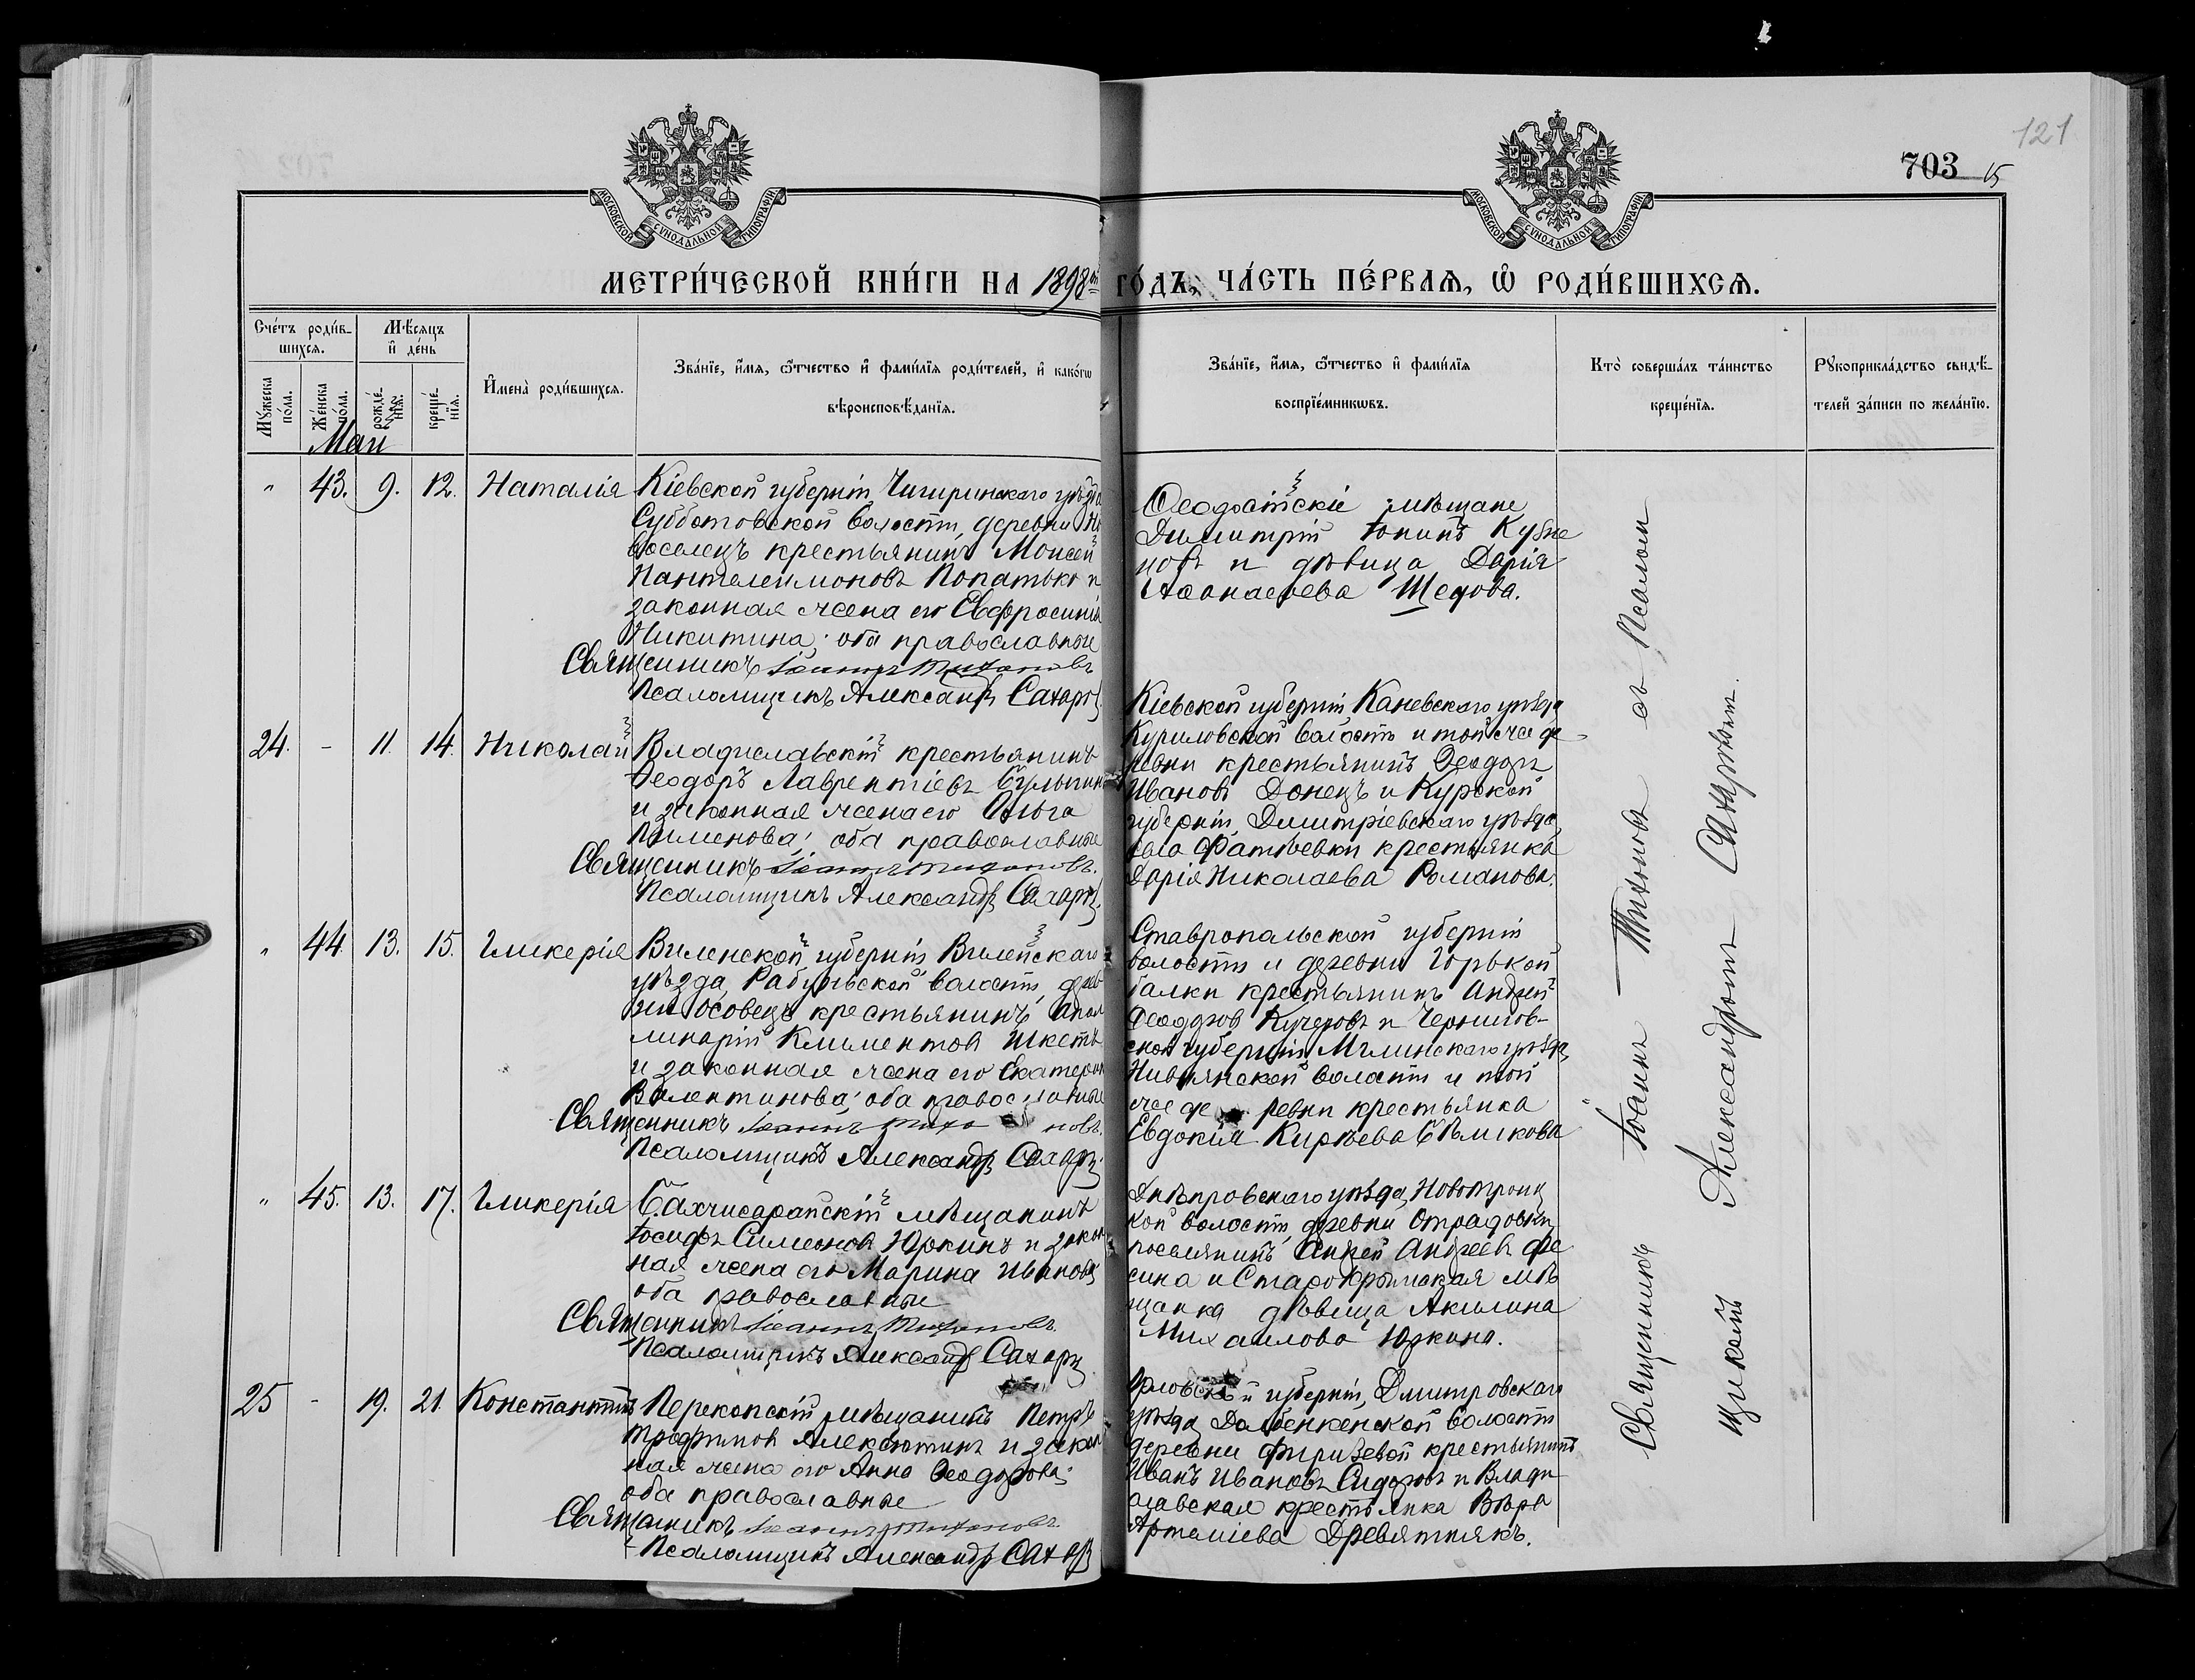 121
703 15
МОСКОВСКОЙ СѴНОДАЛЬНОЙ ТИПОГРАФІИ
МОСКОВСКОЙ СѴНОДАЛЬНОЙ ТИПОГРАФІИ
МЕТРИ́ЧЕСКОЙ КНИ́ГИ НА 1898 ой ГО́ДЪ, ЧА́СТЬ ПЕ́РВАѦ, Ѡ҆ РОДИ́ВШИХСѦ.
Сче́тъ роди́в-
шихсѧ.
Мѣ́сѧцъ
и҆ де́нь
Мꙋ́жеска по́ла.
Же́нска по́ла.
рожде́-
нїѧ.
креще́-
нїѧ.
И҆мена̀ роди́вшихсѧ.
Зва́нїе, и҆́мѧ, ѻ҆́тчество и҆ фами́лїѧ роди́телей, и҆ како́гѡ
вѣроисповѣ́данїѧ.
Зва́нїе, и҆́мѧ, ѻ҆́тчество и҆ фами́лїѧ
воспрїе́мникѡвъ.
Кто̀ соверша́лъ та́инство
креще́нїѧ.
Рꙋкоприкла́дство свидѣ́-
телей за́писи по жела́нїю.
Маи
" 43. 9. 12. Наталія
Кіевской губерніи Чигиринскаго уѣзда
Субботовской волости, деревни Но
воселецъ крестьянинъ Моисей
Пантелеимоновъ Попатько и
законная жена его Евфросинія
Никитина; оба православные
Священникъ Іоаннъ Тихоновъ
Псаломщикъ Александръ Сахаровъ
Ѳеодосійскіе мѣщане
Димитрій Іонинъ Кузне
цовъ и дѣвица Дарія
Аѳанасьева Щедова.
24. - 11. 14. Николай
Владиславскій крестьянинъ
Ѳеодоръ Лаврентіевъ
и законная жена его Ольга
Пименова; оба православные
Священникъ Іоаннъ Тихоновъ.
Псаломщикъ Александръ Сахаровъ
Кіевской губерніи, Каневскаго уѣзда
Куриловской волости и той же де
ревни крестьянинъ Ѳеодоръ
Ивановъ Донецъ и Курской
губерніи, Димитріевскаго уѣзда,
села Фатѣевки крестьянка
Дарія Николаева Романова.
" 44. 13. 15. Гликерія
Виленской губерніи Вилейскаго
уѣзда, волости, дерев
ни Осовецъ крестьянинъ Апол
линарій Климентовъ Шкетъ
и законная жена его Екатерина
Валентинова; оба православные
Священникъ Іоаннъ Тихоновъ.
Псаломщикъ Александръ Сахаровъ
Ставропольской губерніи
волости и деревни Горькой
балки крестьянинъ Андрей
Ѳеодоровъ Кучеровъ и Чернигов-
ской губерніи Мглинскаго уѣзда,
Нивнянской волости и той
же деревни крестьянка
Евдокія Кирѣева Бѣликова
" 45. 13. 17. Гликерія
Бахчисарайскій мѣщанинъ
Іосифъ Симеоновъ Юркинъ и закон
ная жена его Марина Иванова
оба православные
Священникъ Іоаннъ Тихоновъ.
Псаломщикъ Александръ Сахаровъ
Днѣпровскаго уѣзда, Новотроиц
кой волости, деревни Отрадовки
поселянинъ Андрей Андреевъ Фе
сина и Старокрымская мѣ
щанка дѣвица Акилина
Михаилова Юркина.
25 - 19. 21. Константинъ
Перекопскій мѣщанинъ Петръ
Трофимовъ Алексютинъ и закон
ная жена его Анна Ѳеодорова;
оба православные
Священникъ Іоаннъ Тихоновъ.
Псаломщикъ Александръ Сахаровъ
Орловской губерніи, Дмитровскаго
уѣзда, волости
деревни крестьянинъ
Иванъ Ивановъ Сидоровъ и Влади
славская крестьянка Вѣра
Артеміева Древятнякъ.
Священникъ Іоаннъ Тихоновъ съ Псалом
щикомъ Александромъ Сахаровымъ.